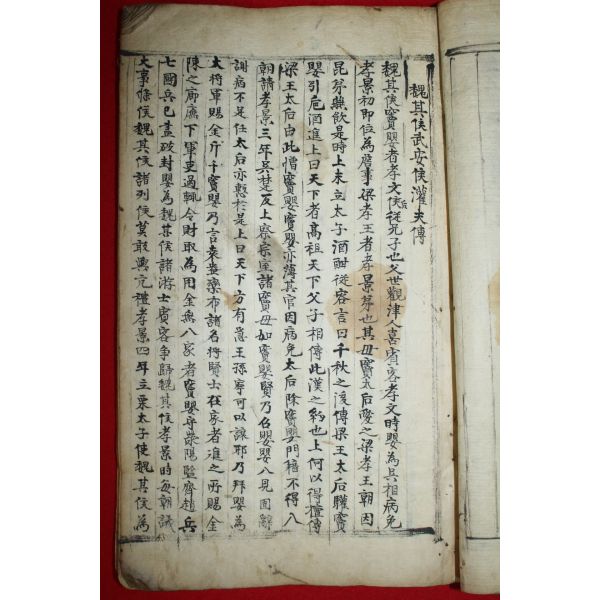 魏其侯武安侯灌夫傳
魏其侯竇嬰者孝文侯后從兄子也父世觀津人喜賓客孝文時嬰為吳相病免
孝景初即位為詹事梁孝王者孝景弟也其母竇太后愛之梁孝王朝因
昆弟燕飲是時上未立太子酒酣從容言曰千秋之後傳梁王太后驩竇
嬰引卮酒進上曰天下者高祖天下父子相傳此漢之約也上何以得擅傳
梁王太后由此憎竇嬰竇嬰亦薄其官因病免太后除竇嬰門籍不得入
朝請孝景三年吳楚反上察宗室諸竇毋如竇嬰賢乃召嬰嬰入見固辭
謝病不足任太后亦慙於是上曰天下方有急王孫寧可以讓耶乃拜嬰為
大將軍賜金斤千竇嬰乃言袁盎欒布諸名將賢士在家者進之所賜金
陳之廊廡下軍吏過輒令財取為用金無入家者竇嬰守滎陽監齊趙兵
七國兵已盡破封嬰為魏其侯諸游士賓客爭歸魏其侯孝景時每朝議
大事條侯魏其侯諸列侯莫敢與亢禮孝景四年立栗太子使魏其侯為